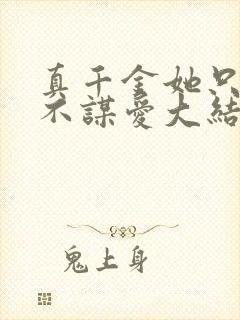 真千金她只
不謀愛大結
鬼上身